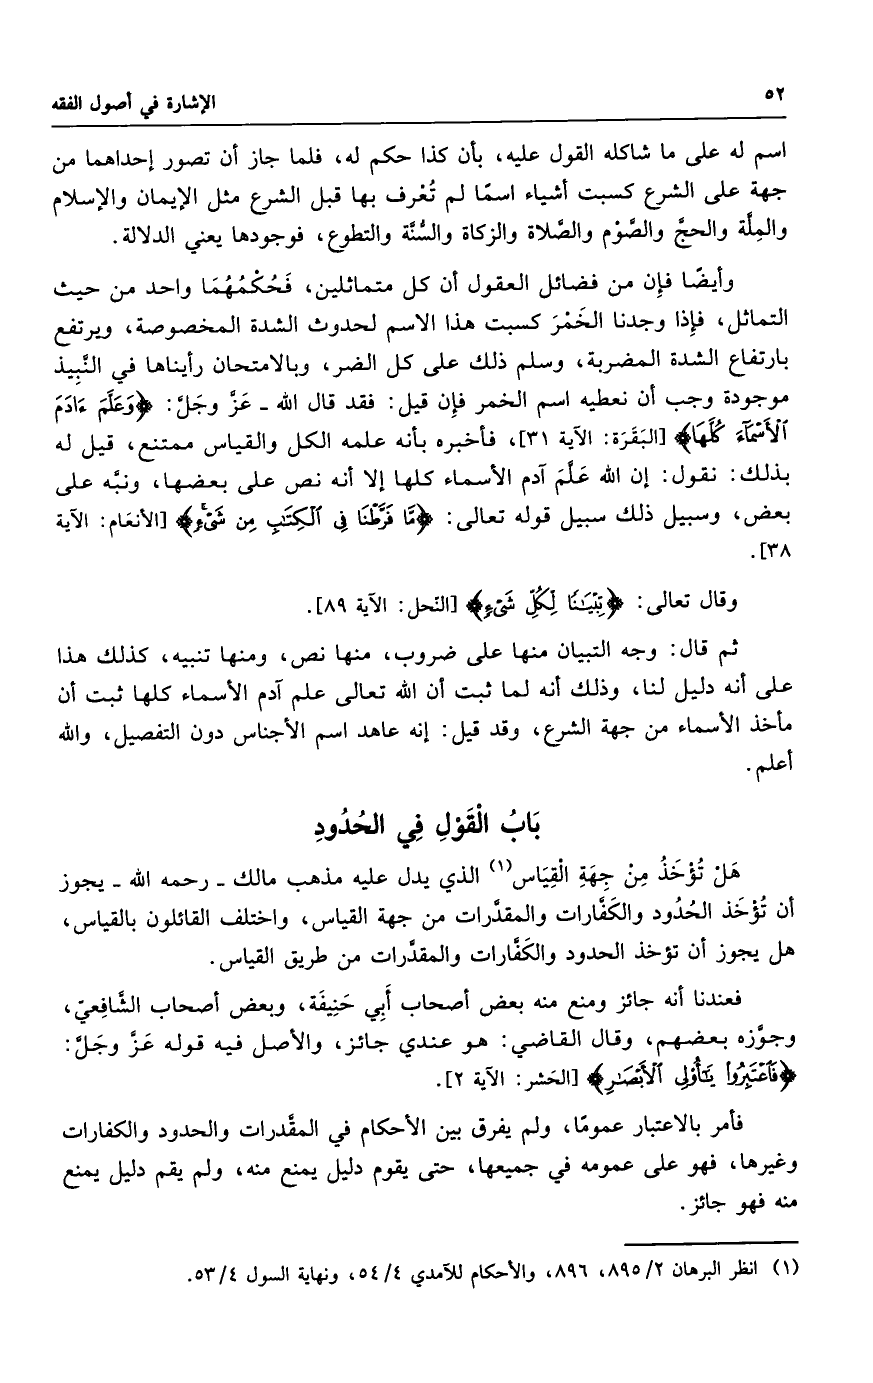 ٥٢
الإشارة في أصول الفقه
اسم له على ما شاكله القول عليه، بأن كذا حكم له، فلما جاز أن تصور إحداهما من
جهة على الشرع كسبت أشياء اسمًا لم تُعْرف بها قبل الشرع مثل الإيمان والإسلام
والمِلَّة والحجَّ والصَّوْم والصَّلاة والزكاة والسُّنَّة والتطوع، فوجودها يعني الدلالة.
وأيضًا فإن من فضائل العقول أن كل متماثلين، فَحُكْمُهُمَا واحد من حيث
التماثل، فإذا وجدنا الخَمْرَ كسبت هذا الاسم لحدوث الشدة المخصوصة، ويرتفع
بارتفاع الشدة المضربة، وسلم ذلك على كل الضر، وبالامتحان رأيناها في النَّبِيذ
موجودة وجب أن نعطيه اسم الخمر فإن قيل: فقد قال الله ـ عَزَّ وجَلَّ: ﴿وَعَلَّمَ ءَادَمَ
ٱلْأَسْمَآءَ كُلَّهَا﴾ [البَقَرَة: الآية ٣١]، فأخبره بأنه علمه الكل والقياس ممتنع، قيل له
بذلك: نقول: إن الله عَلَّمَ آدم الأسماء كلها إلا أنه نص على بعضها، ونبَّه على
بعض، وسبيل ذلك سبيل قوله تعالى: ﴿مَّا فَرَّطْنَا فِي ٱلْكِتَٰبِ مِن شَىْءٍ﴾ [الأنعَام: الآية
٣٨].
وقال تعالى: ﴿تِبْيَٰنًا لِّكُلِّ شَىْءٍ﴾ [النّحل: الآية ٨٩].
ثم قال: وجه التبيان منها على ضروب، منها نص، ومنها تنبيه، كذلك هذا
على أنه دليل لنا، وذلك أنه لما ثبت أن الله تعالى علم آدم الأسماء كلها ثبت أن
مأخذ الأسماء من جهة الشرع، وقد قيل: إنه عاهد اسم الأجناس دون التفصيل، والله
أعلم.
بَابُ الْقَوْلِ فِي الحُدُودِ
هَلْ تُؤْخَذُ مِنْ جِهَةِ الْقِيَاس(١) الذي يدل عليه مذهب مالك ـ رحمه الله ـ يجوز
أن تُؤْخَذ الحُدُود والكَفَّارات والمقدَّرات من جهة القياس، واختلف القائلون بالقياس،
هل يجوز أن تؤخذ الحدود والكَفَّارات والمقدَّرات من طريق القياس.
فعندنا أنه جائز ومنع منه بعض أصحاب أَبِي حَنِيفَة، وبعض أصحاب الشَّافِعيّ،
وجوَّزه بعضهم، وقال القاضي: هو عندي جائز، والأصل فيه قوله عَزَّ وجَلَّ:
﴿فَٱعْتَبِرُوا۟ يَٰٓأُو۟لِى ٱلْأَبْصَٰرِ﴾ [الحَشر: الآية ٢].
فأمر بالاعتبار عمومًا، ولم يفرق بين الأحكام في المقَّدرات والحدود والكفارات
وغيرها، فهو على عمومه في جميعها، حتى يقوم دليل يمنع منه، ولم يقم دليل يمنع
منه فهو جائز.
(١) انظر البرهان ٨٩٥/٢، ٨٩٦، والأحكام للآمدي ٥٤/٤، ونهاية السول ٥٣/٤.